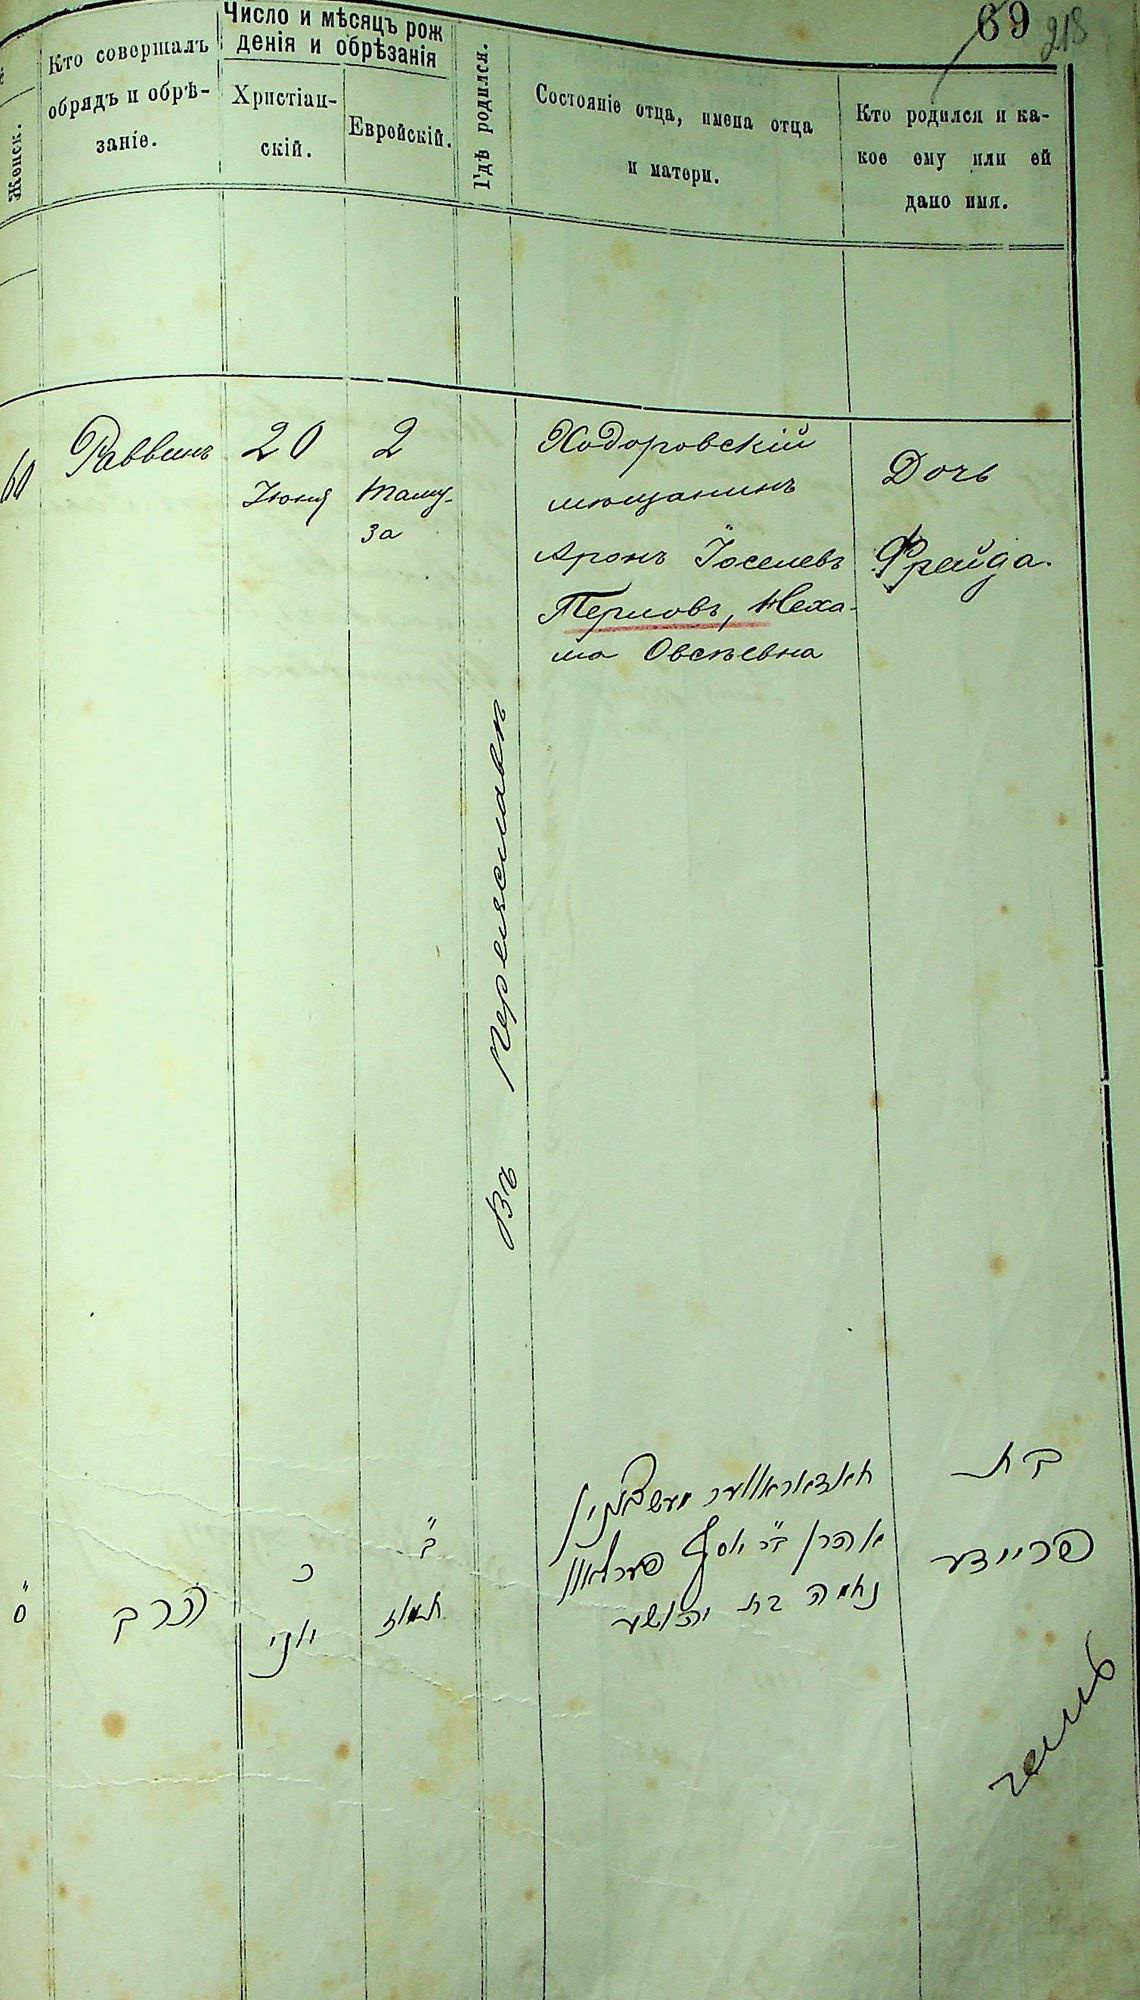 69 218
Женск.
Кто совершалъ
обрядъ и обрѣ-
заніе.
Число и мѣсяцъ рож
денія и обрѣзанія
Христіан-
скій.
Еврейскій.
Гдѣ родился.
Состояніе отца, имена отца
и матери.
Кто родился и ка-
кое ему или ей
дано имя.
60
Раввинъ
20
Іюня
2
Таму-
за
Въ Переяславѣ
Ходоровскій
мѣщанинъ
Аронъ Іоселевъ
Перловъ, Неха-
ма Овсѣевна
Дочь
Фрейда.
ס״
הרב
כ
יוני
ב״
תמוז
חאדאראווער מעשצאנין
אהרן ב״ר יוסף פערלאוו
נחמה בת יהושע
בת
פריידע